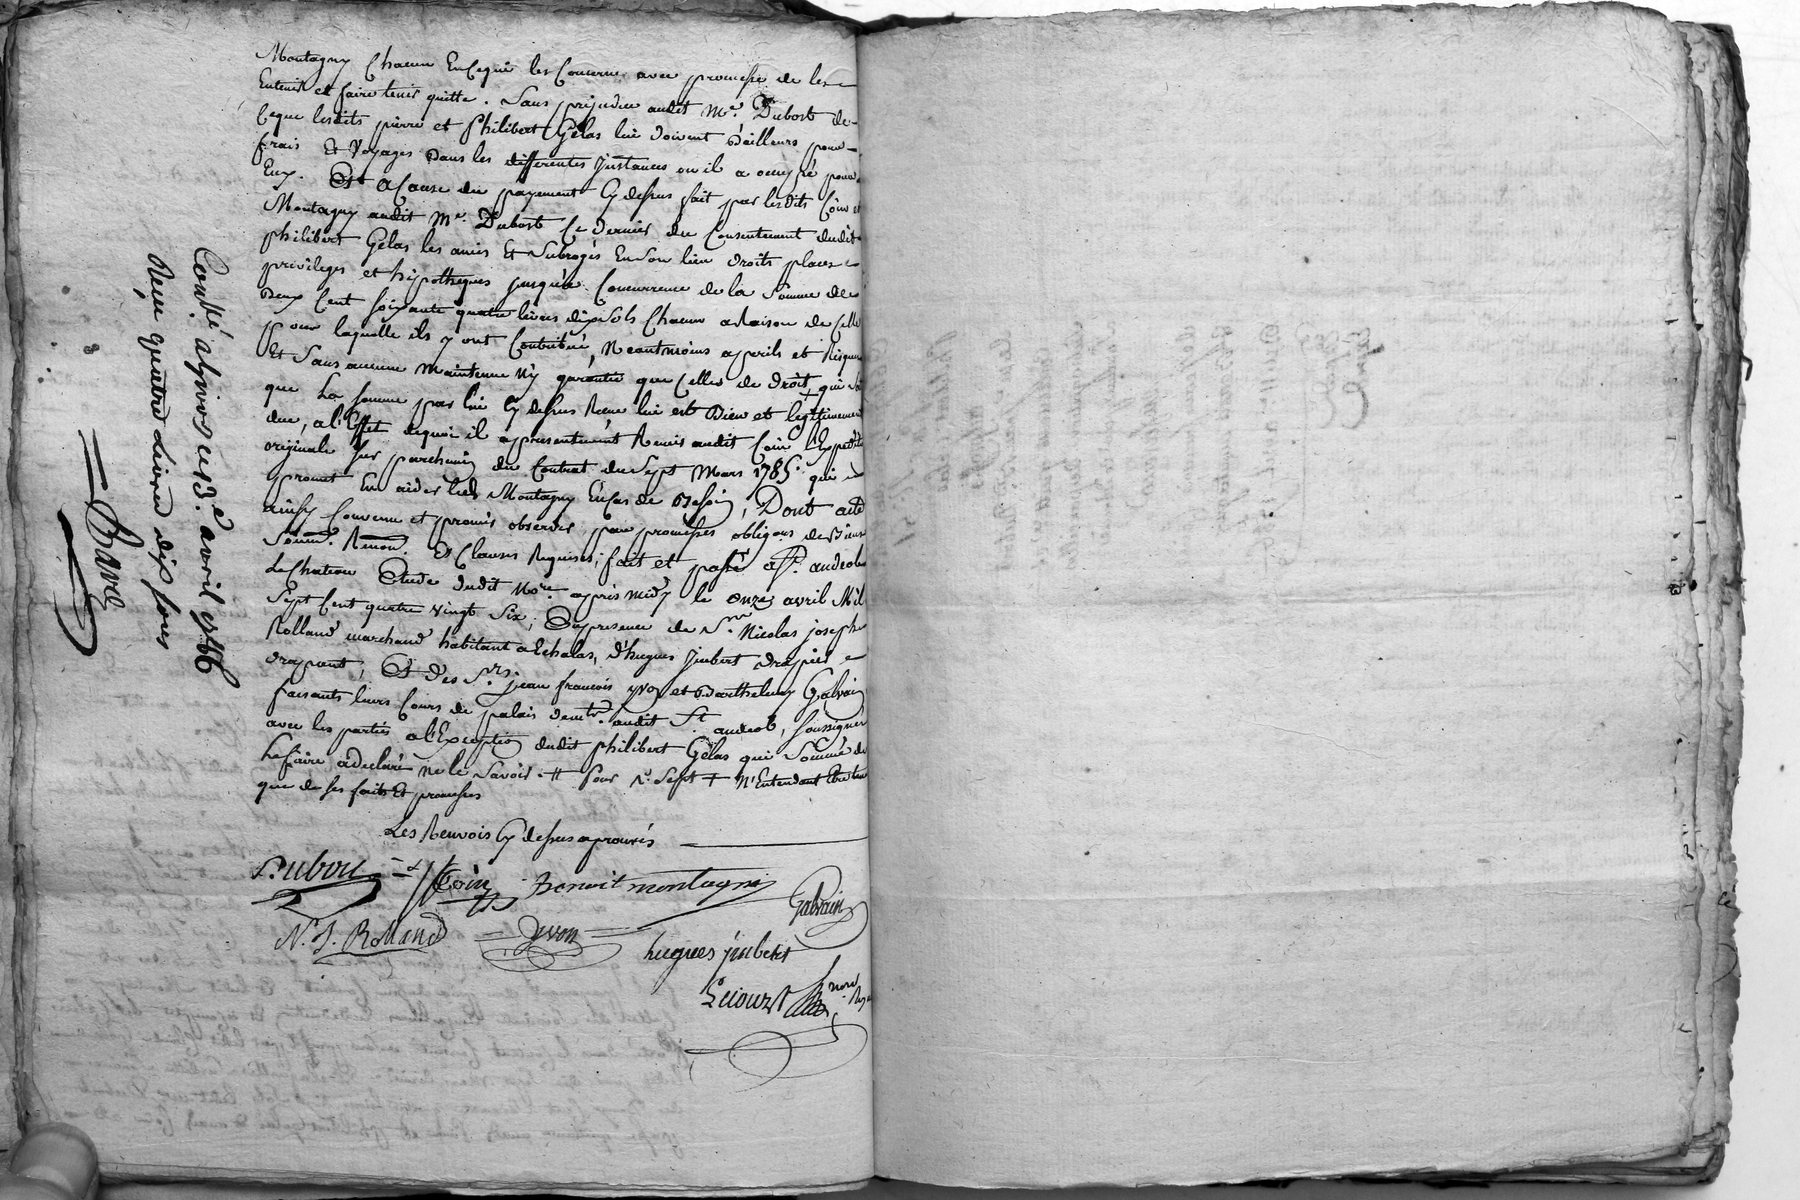 Montagny Chacun Encequi les Concerne avec promesse de les
Entenir et faire tenir quitte. Sans prejudice audit Me. Dubost de
Ceque lesdits pierre et philibert Gelas lui doivent d'ailleurs pour
frais Et Voyages dans les differentes Instances ou il a occupé pour
Eux. Et a Cause du payement Cy dessus fait par lesdits Coin et
Montagny audit Me. Dubost Ce dernier du Consentement dudit
philibert Gelas les a mis Et Subrogés En Son lieu droits place
privileges et hypotheques jusqu'a Concurrence de la Somme de
Deux Cent soixante quatre livres dix Sols Chacun a Raison de Celle
pour laquelle ils y ont Contribué, Neantmoins a perils et Risques
Et Sans aucune Maintenue Ny garantie que Celles de droit, qui est
que La Somme par lui Cy dessus Recue lui est Bien et legitimement
due, a l'Effet dequoi il a presentement Remis audit Coin l'Expedition
originale sur parchemin du Contrat du Sept Mars 1785. qui
promet En aider led. Montagny Encas de Besoin, Dont acte
ainsy Convenu et promis observer, par promesses obligons de Biens
Soumn. Renon. Et Clauses Requises, fait et passé a St. andeol
Le Chateau Etude dudit Nore. apres midy le onze avril Mil
Sept Cent quatre vingt Six, En presence de Sr. Nicolas joseph
Rolland marchand habitant a Echalas, d'hugues Jmbert drapier
drapant, Et des Srs. jean francois yvon et Barthelemy Galvain
faisants leurs Cours de palais demts. audit St. andeol, soussignés
avec les parties a l'Exception dudit philibert Gelas qui Sommé de
Le faire a declaré ne le Savoir. # Sous Sept + N'Entendant Etre tenu
que de ses faits Et promesses
Les Renvois Cy dessus aprouvés
Dubost
Coin
Benoit montagni
Galvain
N. J. Rolland
yvon
hugues jmbert
Lecourt
nore. Ro
Conlé a givors ce 13.e avril 1786
Reçu quatre Livres dix sous
Bavd